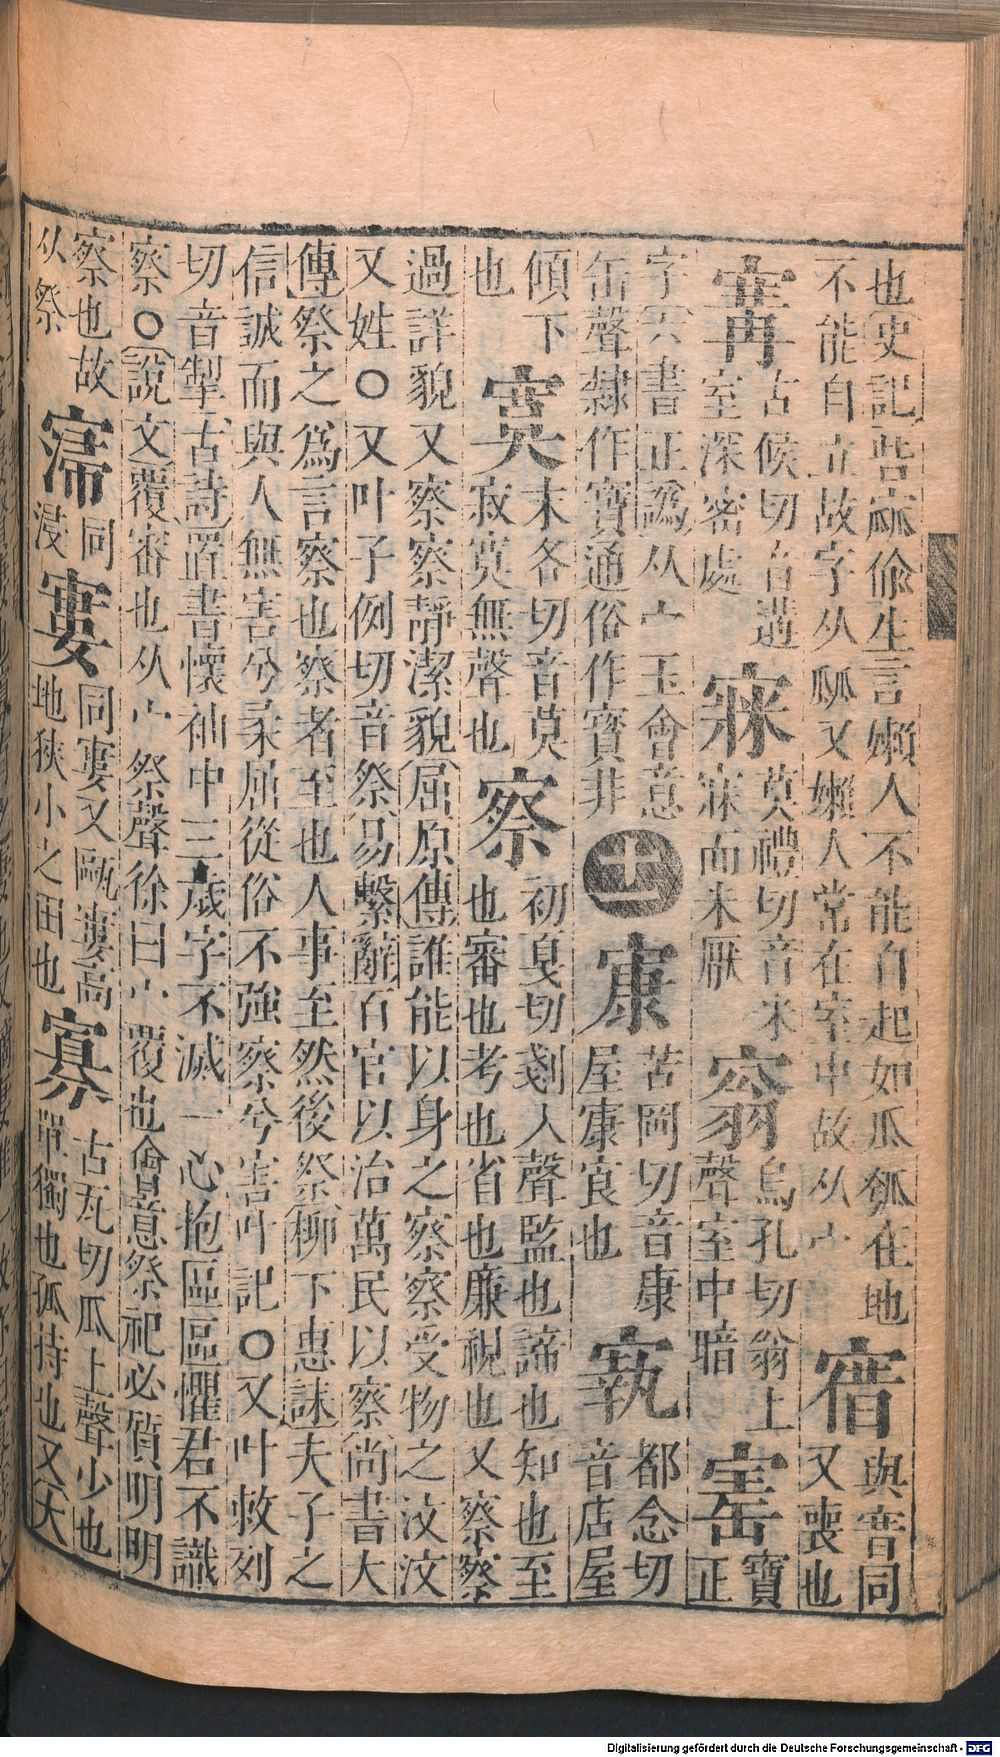 也史記呰窳偷生言嬾人不能自起如瓜瓠在地
不能自立故字从㼌又嬾人常在室中故从宀
又喪也
㝤
古候切音遘
室深密處
㝥
莫禮切音米
寐而未厭
烏孔切翁上
聲室中暗
寚
寶
正
字六書正譌从宀玉會意
缶聲隸作寶通俗作寳非
十一
㝩
苦岡切音康
屋㝩㝗也
㝪
都念切
音店屋
傾下
也
寞
末各切音莫
寂寞無聲也
察
初戛切剗入聲監也諦也知也至
也審也考也省也廉視也又察察
過詳貌又察察靜潔貌屈原傳誰能以身之察察受物之汶汶
又姓〇又叶子例切音祭易繫辭百官以治萬民以察尚書大
傳祭之爲言察也察者至也人事至然後祭柳下惠誄夫子之
信誠而與人無害兮柔屈從俗不強察兮害叶記〇又叶敕列
切音掣古詩置書懷袖中三歲字不滅一心抱區區懼君不識
察〇說文覆審也从宀祭聲徐曰宀覆也會意祭祀必質明明
察也故
从祭
㴆
同
浸
寠
同窶又甌窶高
地狹小之田也
寡
古瓦切瓜上聲少也
單獨也孤特也又大
Digitalisierung gefördert durch die Deutsche Forschungsgemeinschaft - DFG